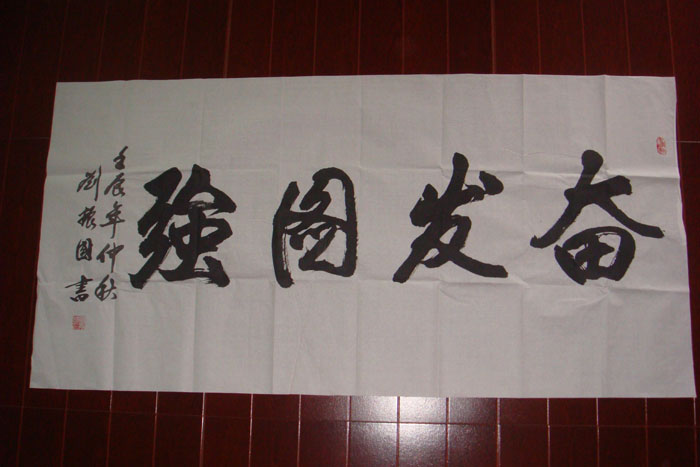 奋发图強
壬辰年仲秋
刘振国书